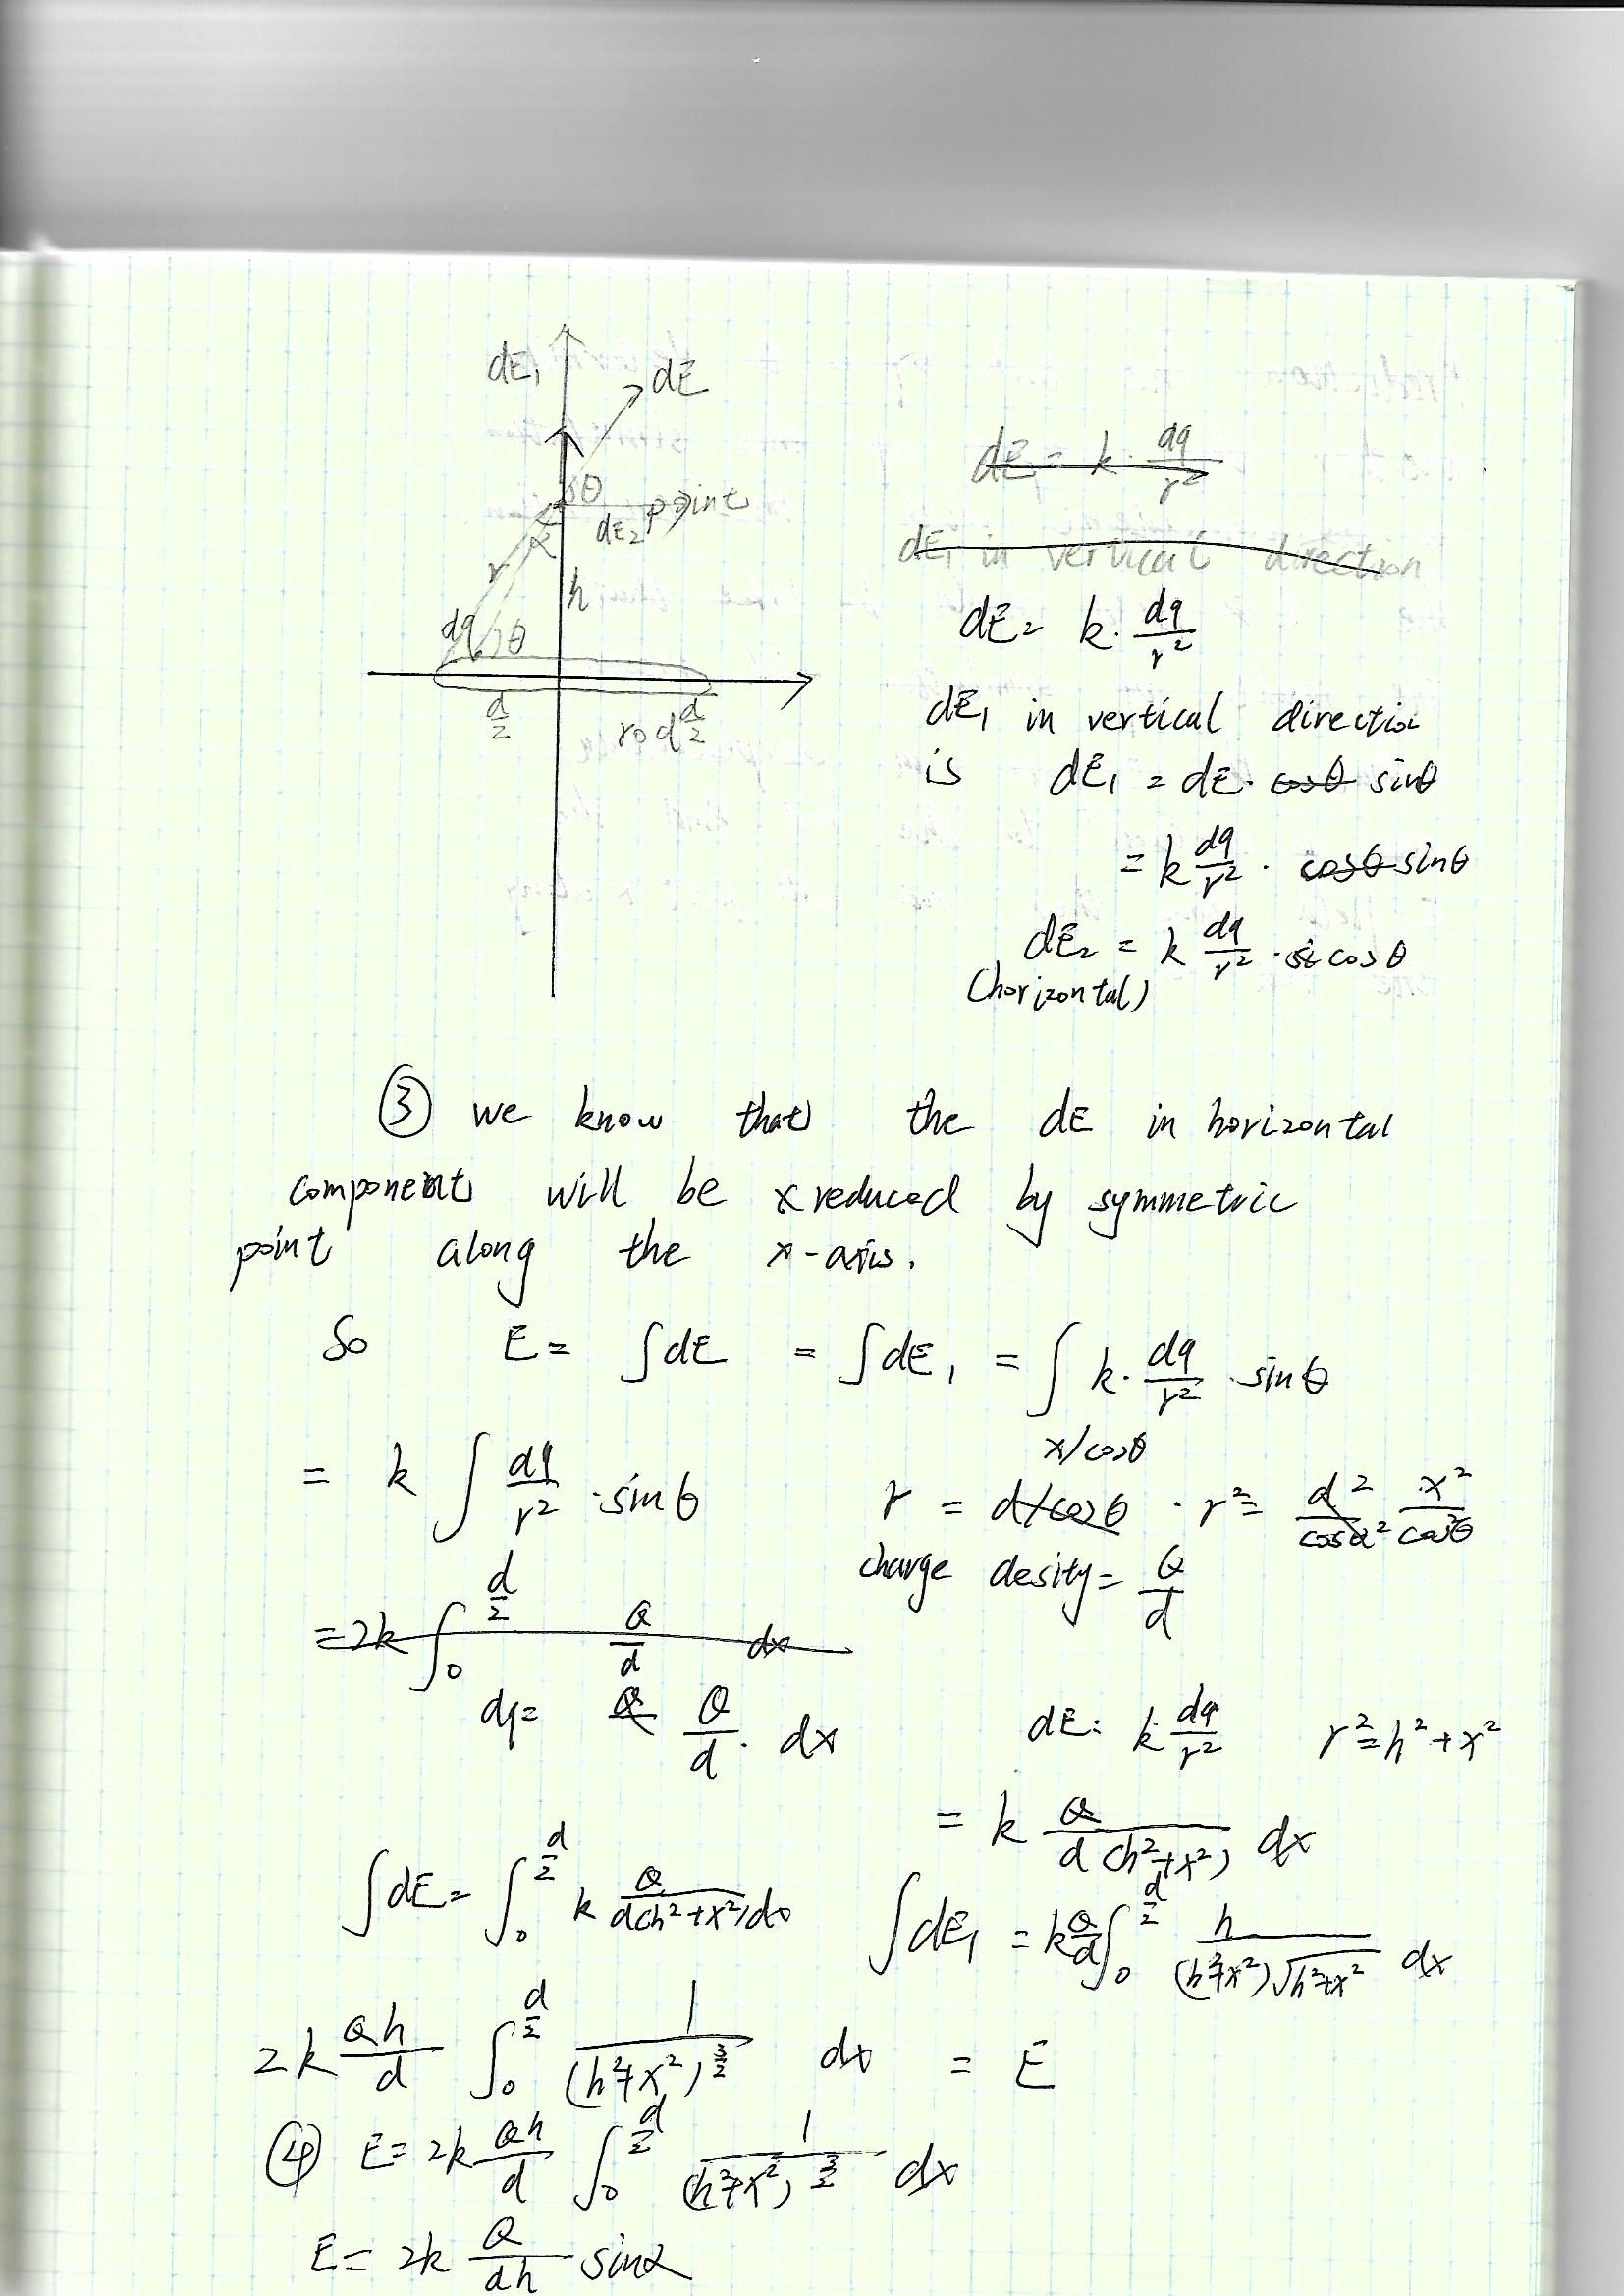 dE₁
dE
θ
dE₂ point
α
r
h
dq θ
d/2
rod d/2
dE = k · dq/r²
dE₁ in vertical direction
dE = k · dq/r²
dE₁ in vertical directio
is dE₁ = dE · cosθ sinθ
= k dq/r² · cosθ sinθ
dE₂ = k dq/r² · si cosθ
(horizontal)
③ we know that the dE in horizontal
component will be x reduced by symmetric
point along the x-axis.
So E = ∫dE = ∫dE₁ = ∫ k · dq/r² · sinθ
= k ∫ dq/r² · sinθ
x/cosθ
r = d/cosθ · r² = d²/cosα² x²/cos²θ
charge desity = Q/d
= 2k ∫₀^(d/2) Q/d dx
dq = Q Q/d · dx
dE = k · dq/r² r² = h² + x²
= k Q/(d(h²+x²)) dx
∫dE = ∫₀^(d/2) k Q/(d(h²+x²)) dx
∫dE₁ = k Q/d ∫₀^(d/2) h/((h²+x²)√(h²+x²)) dx
2k Qh/d ∫₀^(d/2) 1/(h²+x²)^(3/2) dx = E
④ E = 2k Qh/d ∫₀^(d/2) 1/(h²+x²)^(3/2) dx
E = 2k Q/(dh) sinα